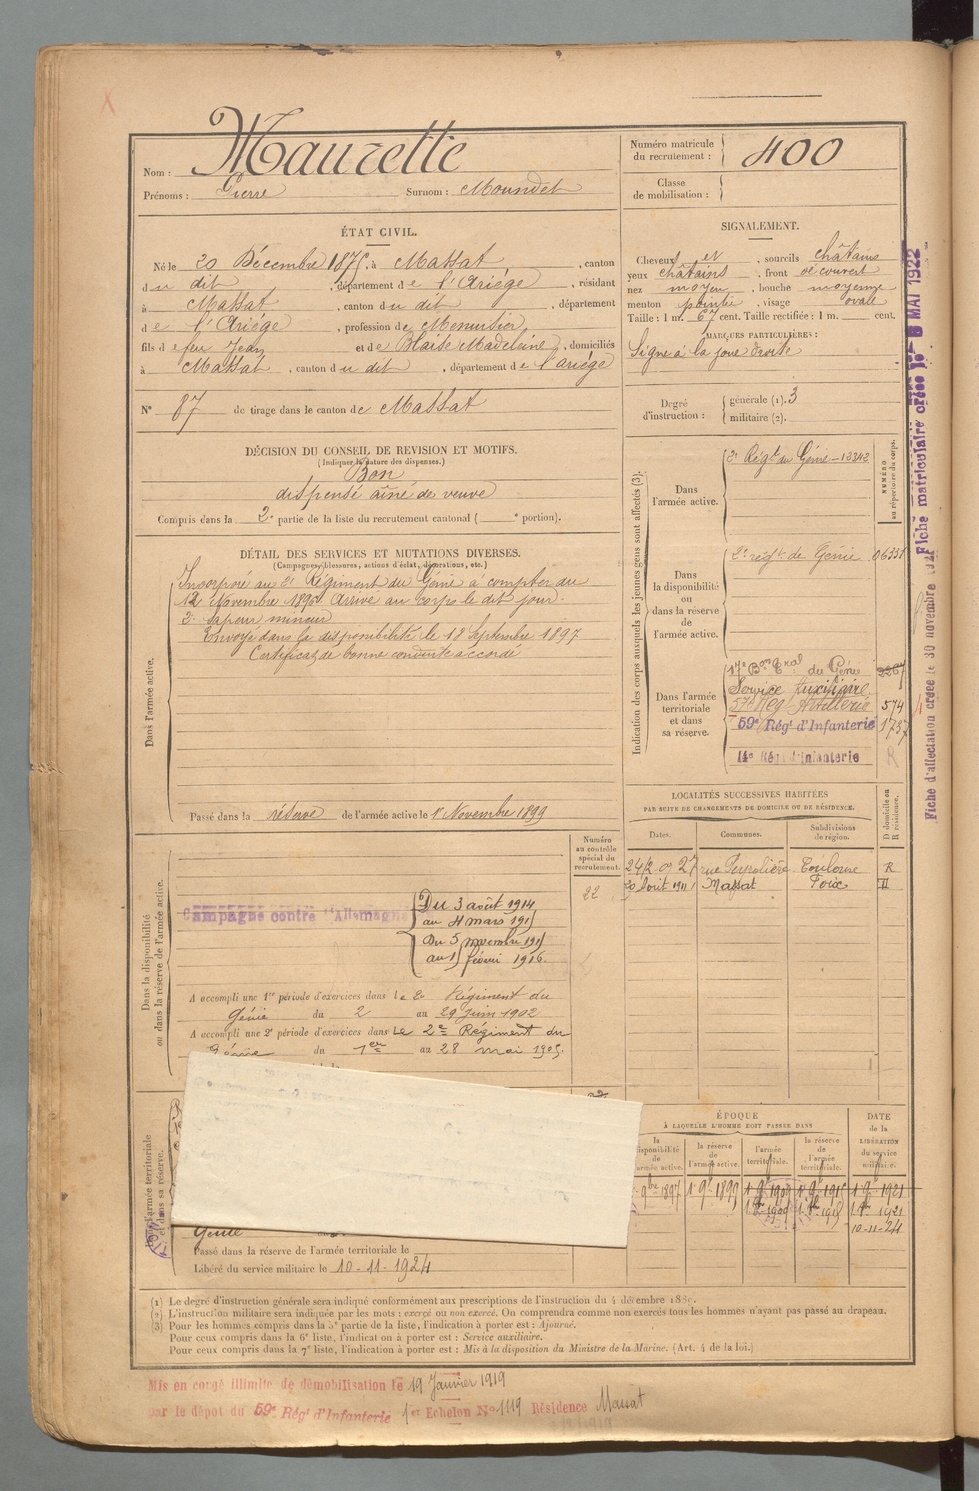 Maurette
Nom :
Prénoms : Pierre Surnom : Moundet
Numéro matricule
du recrutement : 400
Classe
de mobilisation :
ÉTAT CIVIL.
Né le 20 Décembre 1875, à Massat, canton
du dit, département de l'Ariége, résidant
à Massat, canton du dit, département
de l'Ariége, profession de Menuisier,
fils de feu Jean et de Blaise Madeleine, domiciliés
à Massat, canton du dit, département de l'ariége
N° 87 de tirage dans le canton de Massat
SIGNALEMENT.
Cheveux et, sourcils châtains
yeux châtains, front découvert
nez moyen, bouche moyenne
menton pointu, visage ovale
Taille : 1 m. 67 cent. Taille rectifiée : 1 m. cent.
MARQUES PARTICULIÈRES :
Signe à la joue droite
Degré
d'instruction :
générale (1). 3
militaire (2).
DÉCISION DU CONSEIL DE REVISION ET MOTIFS.
(Indiquer la nature des dispenses.)
Bon
dispensé aîné de veuve
Compris dans la 2e partie de la liste du recrutement cantonal ( e portion).
DÉTAIL DES SERVICES ET MUTATIONS DIVERSES.
(Campagnes, blessures, actions d'éclat, décorations, etc.)
Dans l'armée active.
Incorporé au 2e Régiment du Génie à compter du
12 Novembre 1896 Arrivé au corps le dit jour.
2e sapeur mineur
Envoyé dans la disponibilité le 18 Septembre 1897
Certificat de bonne conduite accordé
Passé dans la réserve de l'armée active le 1er Novembre 1899
Indication des corps auxquels les jeunes gens sont affectés (3).
NUMÉRO
au répertoire du corps.
Dans
l'armée active.
2e Régt du Génie – 13343
Dans
la disponibilité
ou
dans la réserve
de
l'armée active.
2e régt de Génie 06331
Dans l'armée
territoriale
et dans
sa réserve.
17e Bon Eral du Génie 2267
Service Auxiliaire
57e Rég Artillerie 574
59e Régt d'Infanterie 1737
14e Régt d'Infanterie R
Fiche matriculaire créée le 5 MAI 1922
Fiche d'affectation créée le 30 novembre
LOCALITÉS SUCCESSIVES HABITÉES
PAR SUITE DE CHANGEMENTS DE DOMICILE OU DE RÉSIDENCE.
Dates. Communes. Subdivisions
de région. D domicile ou
R résidence.
24/2 09 27 rue Peyrolière Toulouse R
20 Août 1911 Massat Foix
Numéro
au contrôle
spécial du
recrutement.
22
Dans la disponibilité
ou dans la réserve de l'armée active.
Campagne contre l'Allemagne
Du 3 août 1914
au 4 mars 1915
Du 5 novembre 1915
au 15 février 1916
A accompli une 1re période d'exercices dans le 2e Régiment du
Génie du 2 au 29 Juin 1902
A accompli une 2e période d'exercices dans le 2e Régiment du
Génie du 1er au 28 mai 1905.
Dans l'armée territoriale
et dans sa réserve.
Génie
Passé dans la réserve de l'armée territoriale le
Libéré du service militaire le 10-11-1924
ÉPOQUE
À LAQUELLE L'HOMME DOIT PASSER DANS
la
disponibilité
de
l'armée active.
la réserve
de
l'armée active.
l'armée
territoriale.
la réserve
de
l'armée
territoriale.
DATE
de la
LIBÉRATION
du service
militaire.
9bre 1897 1 9bre 1899 1 9bre 1909 1 9bre 1915 1 9bre 1921
10-11-24
(1) Le degré d'instruction générale sera indiqué conformément aux prescriptions de l'instruction du 4 décembre 1889.
(2) L'instruction militaire sera indiquée par les mots : exercé ou non exercé. On comprendra comme non exercés tous les hommes n'ayant pas passé au drapeau.
(3) Pour les hommes compris dans la 5e partie de la liste, l'indication à porter est : Ajourné.
Pour ceux compris dans la 6e liste, l'indication à porter est : Service auxiliaire.
Pour ceux compris dans la 7e liste, l'indication à porter est : Mis à la disposition du Ministre de la Marine. (Art. 4 de la loi.)
Mis en congé illimité de démobilisation le 19 Janvier 1919
par le dépôt du 59e Régt d'Infanterie 1er Echelon N° 1119 Résidence Massat